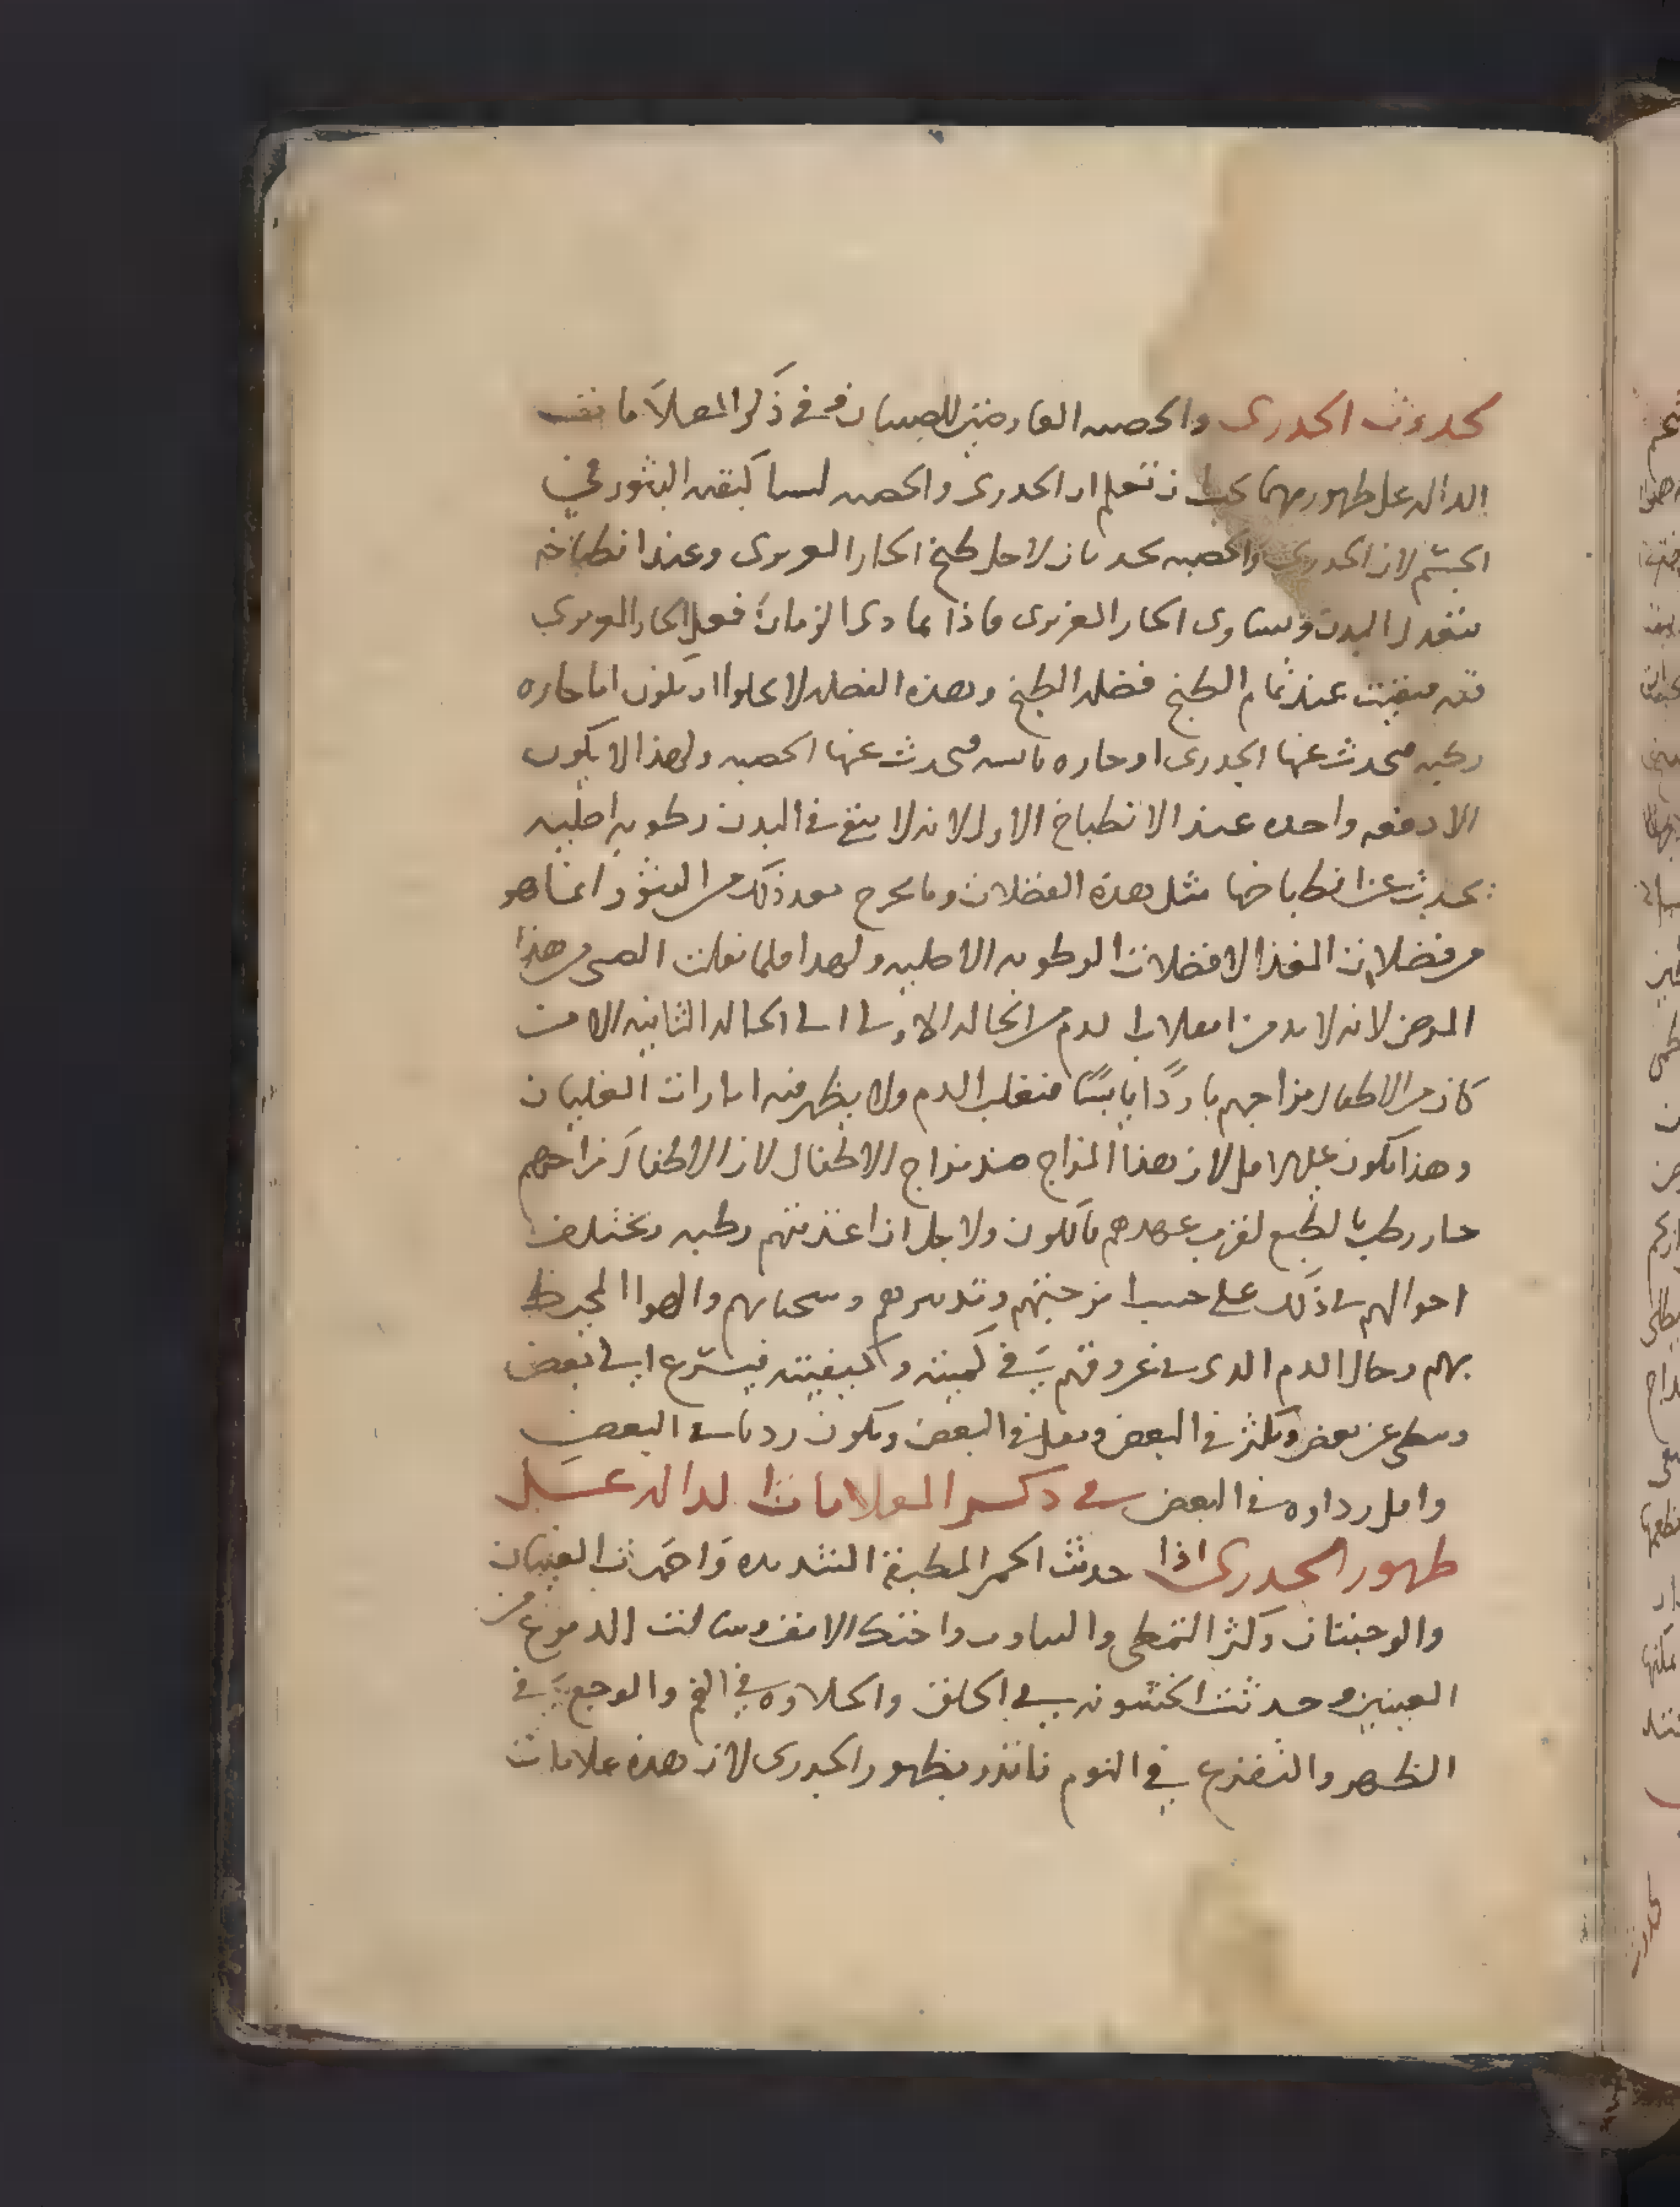 لحدوث الجدرى والحصبه العارضين للصبيان وفى ذكر العلامات
الداله على ظهورهما يجب ان تعلم ان الجدرى والحصبه ليسا كبقيه البثور فى
الجسم لان الجدرى والحصبه يحدثان لاجل طبخ الحار الغريزى وعند انطباخه
البدن ويساوى الحار الغريزى فاذا تمادى الزمان فعل الحار الغريزى
فيه فبقيت عند تمام الطبخ فضله الطبخ وهذه الفضله لا يخلوا ان تكون اما حاره
رطبه فيحدث عنها الجدرى او حاره يابسه فيحدث عنها الحصبه ولهذا لا يكون
الا دفعه واحده عند الانطباخ الاول لانه لا يبقى فى البدن رطوبه اصليه
يحدث عن انطباخها مثل هذه الفضلات وما يخرج بعد ذلك من البثور انما هو
من فضلات الغذا لا فضلات الرطوبه الاصليه ولهذا قلما يفلت الصبى من هذا
المرض لانه لا بد من انقلاب الدم من الحاله الاولى الى الحاله الثانيه الا من
كان من الاطفال مزاجهم باردًا يابسًا فينقلب الدم ولا يظهر منه امارات الغليان
وهذا يكون لان هذا المزاج ضد مزاج الاطفال لان الاطفال مزاجهم
حار رطب بالطبع لقرب عهدهم بالكون ولاجل ان اغذيتهم رطبه وتختلف
احوالهم فى ذلك على حسب امزجتهم وتدبيرهم وسحناتهم والهوا المحيط
بهم وحال الدم الذى فى عروقهم فى كميته وكيفيته فيسرع فى بعض
ويبطى عن بعض ويكثر فى البعض ويقل فى البعض ويكون رديا فى البعض
واقل رداوه فى البعض فى ذكر العلامات الداله على
ظهور الجدرى اذا حدثت الحمى المطبقة الشديده واحمرت العينان
والوجنتان وكثر التمطى والتثاوب واحتك الانف وسالت الدموع من
العينين وحدثت الخشونه فى الحلق والحلاوه فى الفم والوجع فى
الظهر والتفزع فى النوم فانذر بظهور الجدرى لان هذه علامات